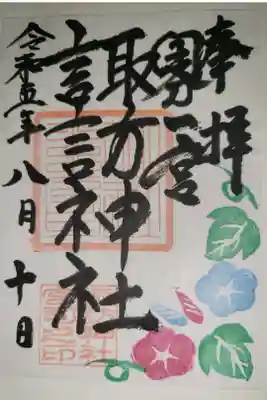 奉拝
一宮
諏訪神社
令和五年八月十日